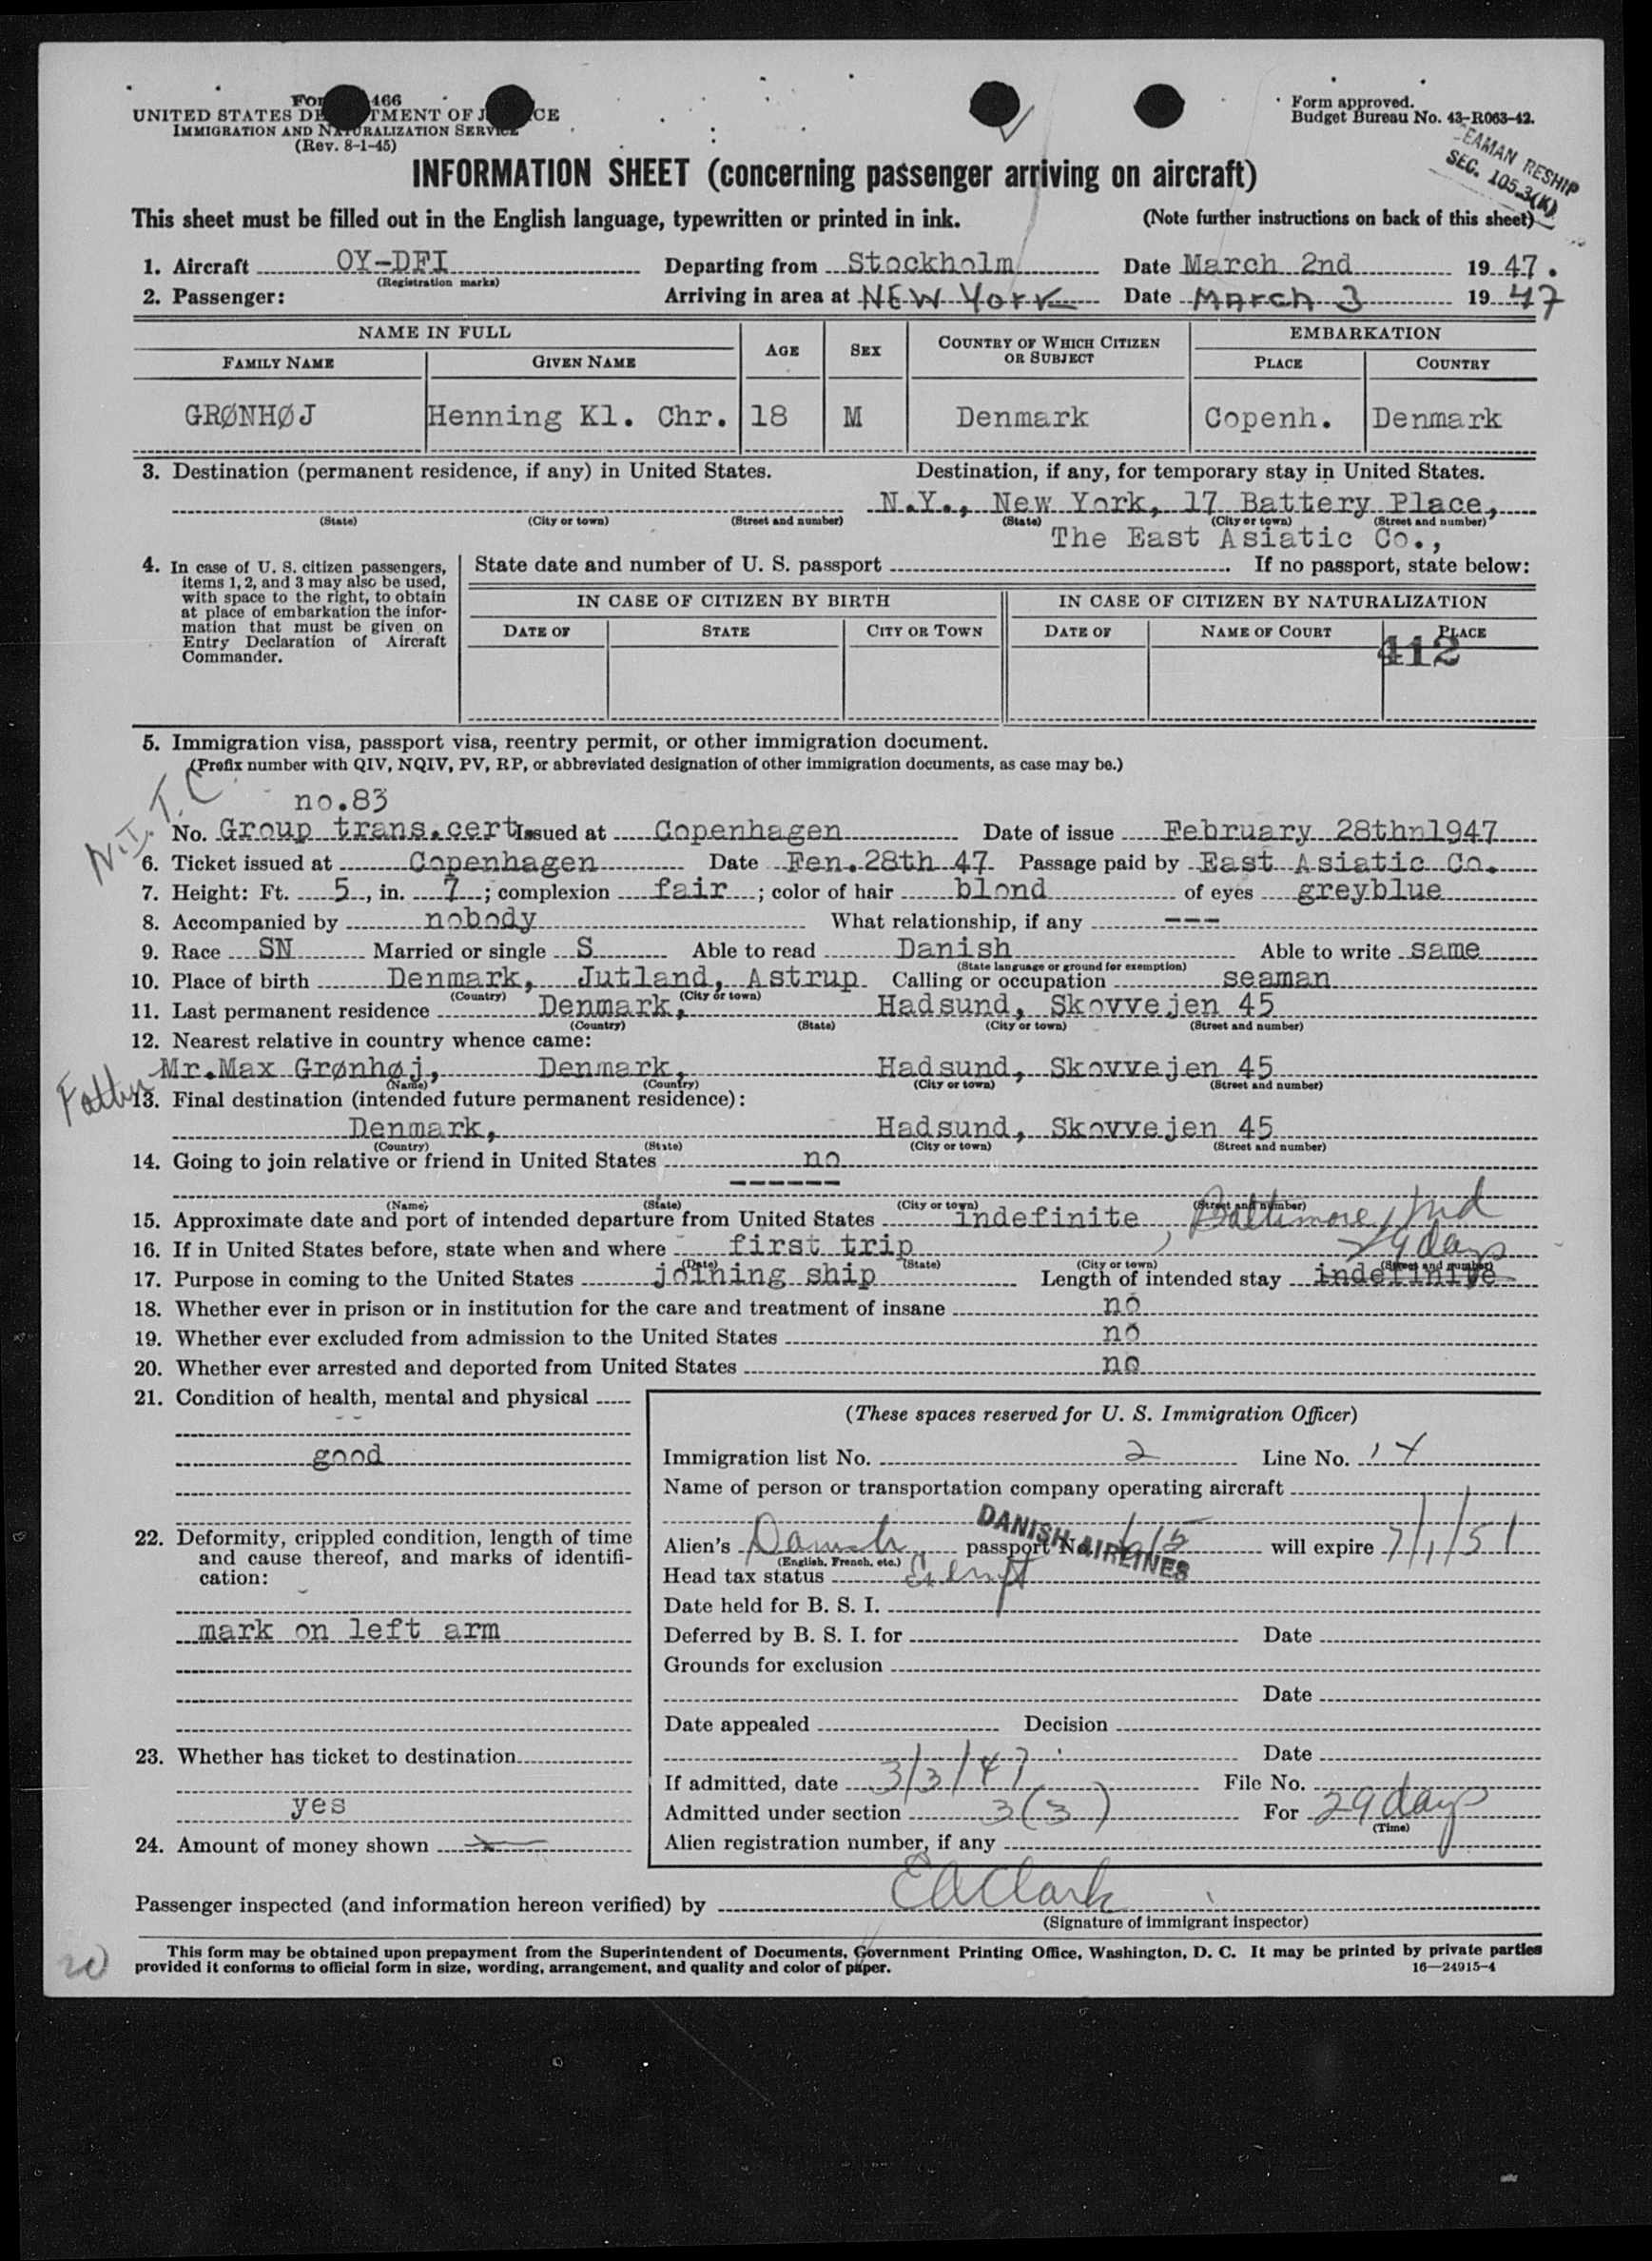 466
UNITED STATES
IMMIGRATION AND NATURALIZATION SERVICE
(Rev. 8-1-45)
Form approved.
Budget Bureau No. 43-R063-42.
RESHIP
SEC. 105.3(K)
INFORMATION SHEET (concerning passenger arriving on aircraft)
This sheet must be filled out in the English language, typewritten or printed in ink. (Note further instructions on back of this sheet)
1. Aircraft OY-DFI Departing from Stockholm Date March 2nd 1947.
(Registration marks)
2. Passenger: Arriving in area at NEW York Date MArch 3 1947
NAME IN FULL AGE SEX COUNTRY OF WHICH CITIZEN OR SUBJECT EMBARKATION
FAMILY NAME GIVEN NAME PLACE COUNTRY
GRØNHØJ Henning Kl. Chr. 18 M Denmark Copenh. Denmark
3. Destination (permanent residence, if any) in United States. Destination, if any, for temporary stay in United States.
N.Y., New York, 17 Battery Place,
(State) (City or town) (Street and number) (State) (City or town) (Street and number)
The East Asiatic Co.,
4. In case of U. S. citizen passengers, items 1, 2, and 3 may also be used, with space to the right, to obtain at place of embarkation the information that must be given on Entry Declaration of Aircraft Commander.
State date and number of U. S. passport If no passport, state below:
IN CASE OF CITIZEN BY BIRTH IN CASE OF CITIZEN BY NATURALIZATION
DATE OF STATE CITY OR TOWN DATE OF NAME OF COURT PLACE
412
5. Immigration visa, passport visa, reentry permit, or other immigration document.
(Prefix number with QIV, NQIV, PV, RP, or abbreviated designation of other immigration documents, as case may be.)
no.83
No. Group trans.cert Issued at Copenhagen Date of issue February 28thn1947
6. Ticket issued at Copenhagen Date Fen.28th 47 Passage paid by East Asiatic Co.
7. Height: Ft. 5, in. 7; complexion fair; color of hair blond of eyes greyblue
8. Accompanied by nobody What relationship, if any ---
9. Race SN Married or single S Able to read Danish Able to write same
(State language or ground for exemption)
10. Place of birth Denmark, Jutland, Astrup Calling or occupation seaman
(Country) (City or town)
11. Last permanent residence Denmark, Hadsund, Skovvejen 45
(Country) (State) (City or town) (Street and number)
12. Nearest relative in country whence came:
Mr.Max Grønhøj, Denmark, Hadsund, Skovvejen 45
(Name) (Country) (City or town) (Street and number)
Father
13. Final destination (intended future permanent residence):
Denmark, Hadsund, Skovvejen 45
(Country) (State) (City or town) (Street and number)
14. Going to join relative or friend in United States no
------
(Name) (State) (City or town) (Street and number)
15. Approximate date and port of intended departure from United States indefinite, Baltimore, Md
16. If in United States before, state when and where first trip
29 days
(Date) (State) (City or town) (Street and number)
17. Purpose in coming to the United States joining ship Length of intended stay indefinite
18. Whether ever in prison or in institution for the care and treatment of insane no
19. Whether ever excluded from admission to the United States no
20. Whether ever arrested and deported from United States no
21. Condition of health, mental and physical
good
22. Deformity, crippled condition, length of time and cause thereof, and marks of identification:
mark on left arm
23. Whether has ticket to destination
yes
24. Amount of money shown
(These spaces reserved for U. S. Immigration Officer)
Immigration list No. 2 Line No. 14
Name of person or transportation company operating aircraft
DANISH AIRLINES
Alien's Danish passport No. will expire 7/1/51
(English, French, etc.)
Head tax status Exempt
Date held for B. S. I.
Deferred by B. S. I. for Date
Grounds for exclusion
Date
Date appealed Decision
Date
If admitted, date 3/3/47 File No.
Admitted under section 3(3) For 29 days
(Time)
Alien registration number, if any
Passenger inspected (and information hereon verified) by EAClark
(Signature of immigrant inspector)
This form may be obtained upon prepayment from the Superintendent of Documents, Government Printing Office, Washington, D. C. It may be printed by private parties
provided it conforms to official form in size, wording, arrangement, and quality and color of paper. 16—24915-4
20